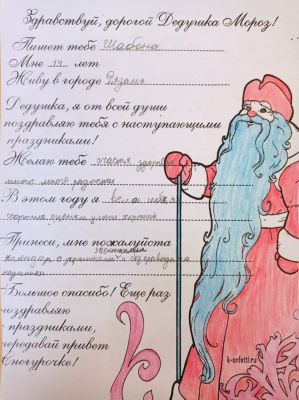 Здравствуй, дорогой Дедушка Мороз!
Пишет тебе Шабона
Мне 14 лет
Живу в городе Рязань
Дедушка, я от всей души
поздравляю тебя с наступающими
праздниками!
Желаю тебе счастя здоровья
много много радости
В этом году я вела себя
хорошо
Принеси, мне пожалуйста
календарь с украшениями и беспроводные
наушники
Большое спасибо! Еще раз
поздравляю
с праздниками,
передавай привет
Снегурочке!
k-onfetti.ru